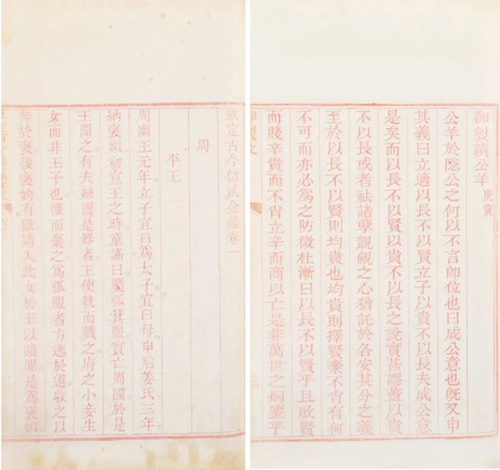 御製讀公羊 庚寅
公羊於隱公之何以不言即位也曰成公意也旣又申
其義曰立適以長不以賢立子以貴不以長夫成公意
是矣而以長不以賢以貴不以長之說實甚謬蓋以貴
不以長或者祛諸孽覬覦之心猶託於各安其分之義
至於以長不以賢則均貴也均貴則擇賢棄不肖有何
不可而亦必為之防微杜漸曰以長不以賢乎且啟賢
而賤辛貴而不肖立辛而商以亡是非萬世之炯鑒乎
御製文
欽定古今儲貳金鑑卷一
周
平王
周幽王元年立子宜臼為太子宜臼母申后姜氏三年
納褒姒初宣王之時童謠曰檿弧箕服實亡周國於是
王聞之有夫婦鬻是器者王使執而戮之府之小妾生
女而非王子也懼而棄之為弧服者方逃於道收之以
奔於褒後褒姁有獄請入此女於王以贖罪是為褒姒